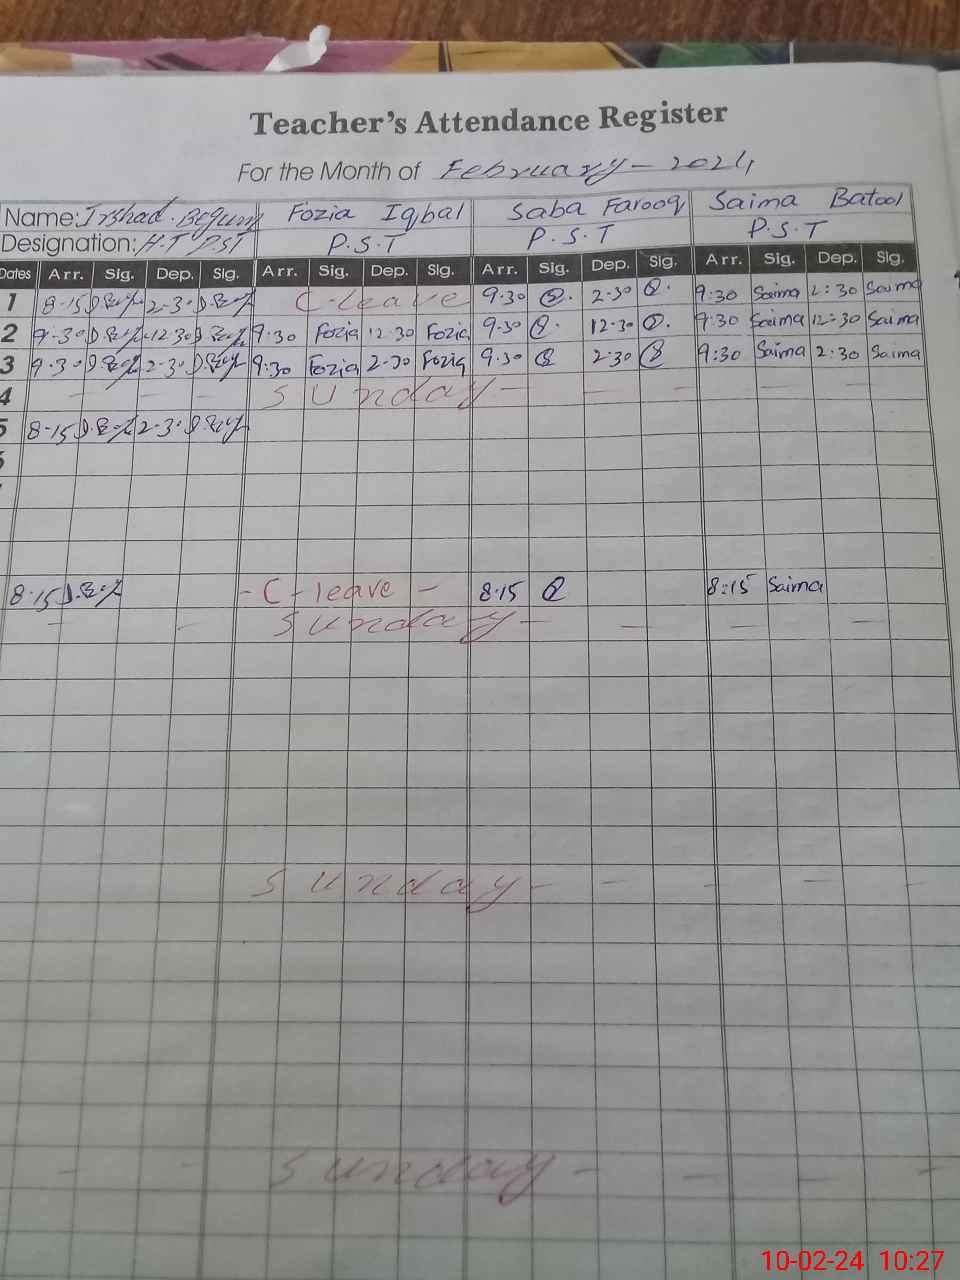 Teacher's Attendance Register
For the Month of February - 2024
Name: Irshad Begum Fozia Iqbal Saba Farooq Saima Batool
Designation: H.T PST P.S.T P.S.T P.S.T
Dates Arr. Sig. Dep. Sig. Arr. Sig. Dep. Sig. Arr. Sig. Dep. Sig. Arr. Sig. Dep. Sig.
1 8-15 2-30 C-leave 9.30 2.30 9:30 Saima 2:30 Saima
2 9-30 12.30 9:30 Fozia 12.30 Fozia 9.30 12.30 9:30 Saima 12:30 Saima
3 9.30 2-30 9:30 Fozia 2-30 Fozia 9.30 2.30 9:30 Saima 2:30 Saima
4 - - - Sunday - - - -
5 8-15 2-30
8-15 - C-leave - 8.15 8:15 Saima
- - Sunday - - - -
Sunday - - - - -
- - Sunday - - - -
10-02-24 10:27